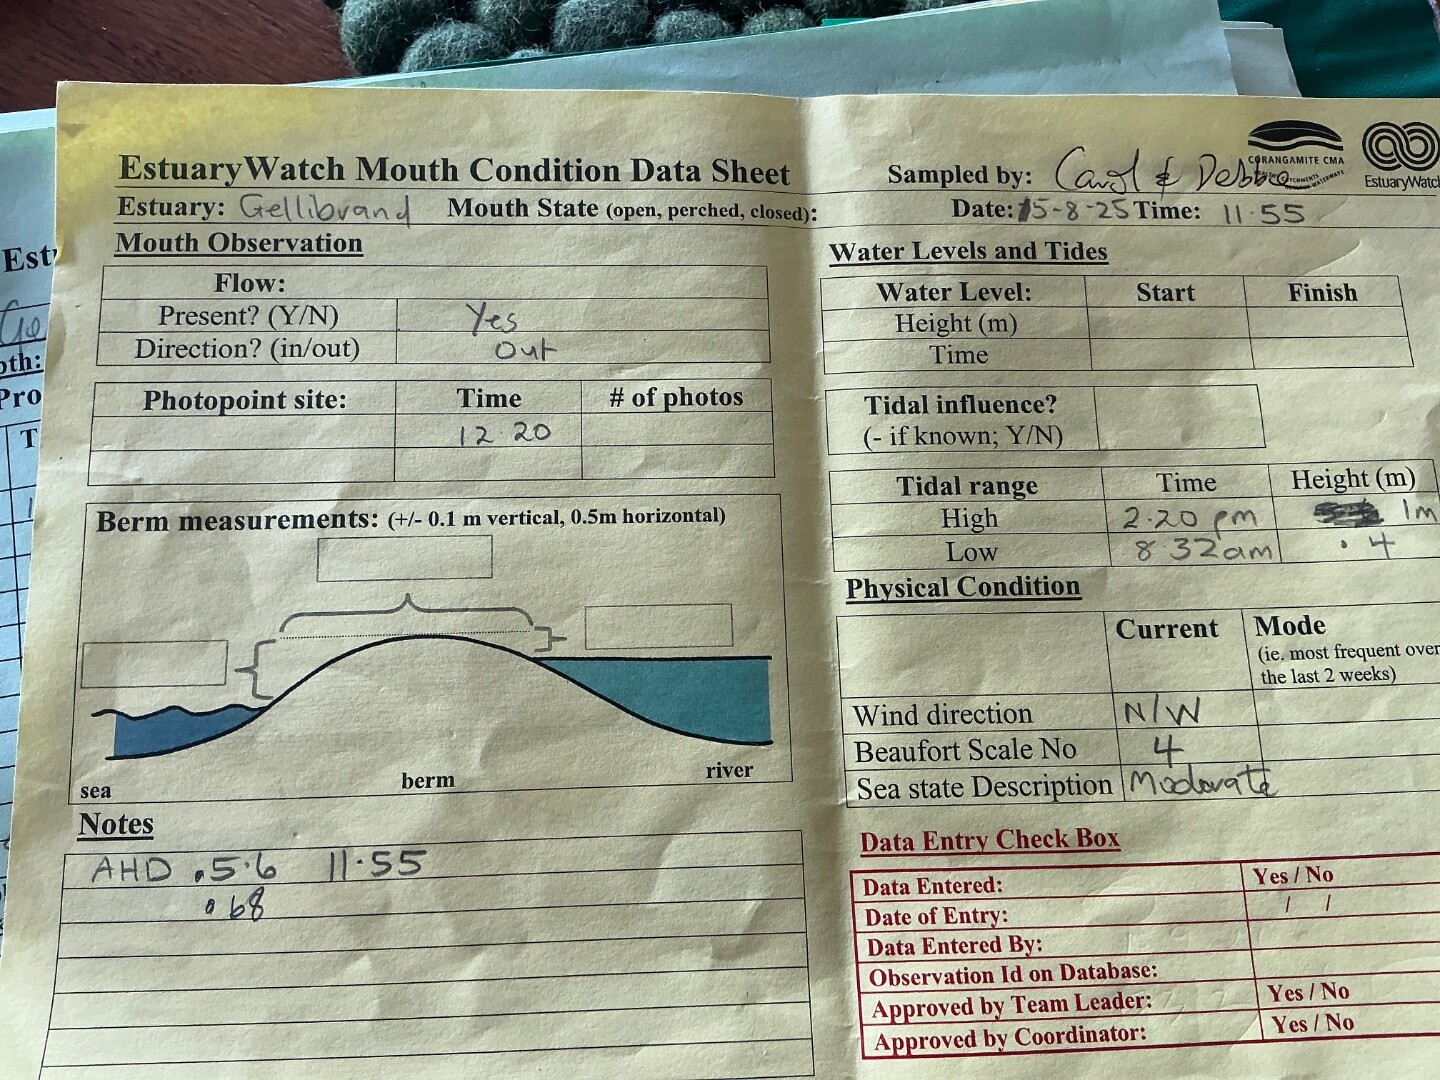 EstuaryWatch Mouth Condition Data Sheet
Estuary: Gellibrand Mouth State (open, perched, closed):
Mouth Observation
Flow:
Present? (Y/N) Yes
Direction? (in/out) Out
Photopoint site: Time # of photos
12.20
Berm measurements: (+/- 0.1 m vertical, 0.5m horizontal)
sea berm river
Notes
AHD .5.6 11.55
.68
Sampled by: Carol & Debbie
CORANGAMITE CMA
EstuaryWatch
Date: 15-8-25 Time: 11.55
Water Levels and Tides
Water Level: Start Finish
Height (m)
Time
Tidal influence?
(- if known; Y/N)
Tidal range Time Height (m)
High 2.20 pm 1m
Low 8.32am .4
Physical Condition
Current Mode
(ie. most frequent over
the last 2 weeks)
Wind direction N/W
Beaufort Scale No 4
Sea state Description Moderate
Data Entry Check Box
Data Entered: Yes / No
Date of Entry: / /
Data Entered By:
Observation Id on Database:
Approved by Team Leader: Yes / No
Approved by Coordinator: Yes / No
Est
Ge
oth:
Pro
T